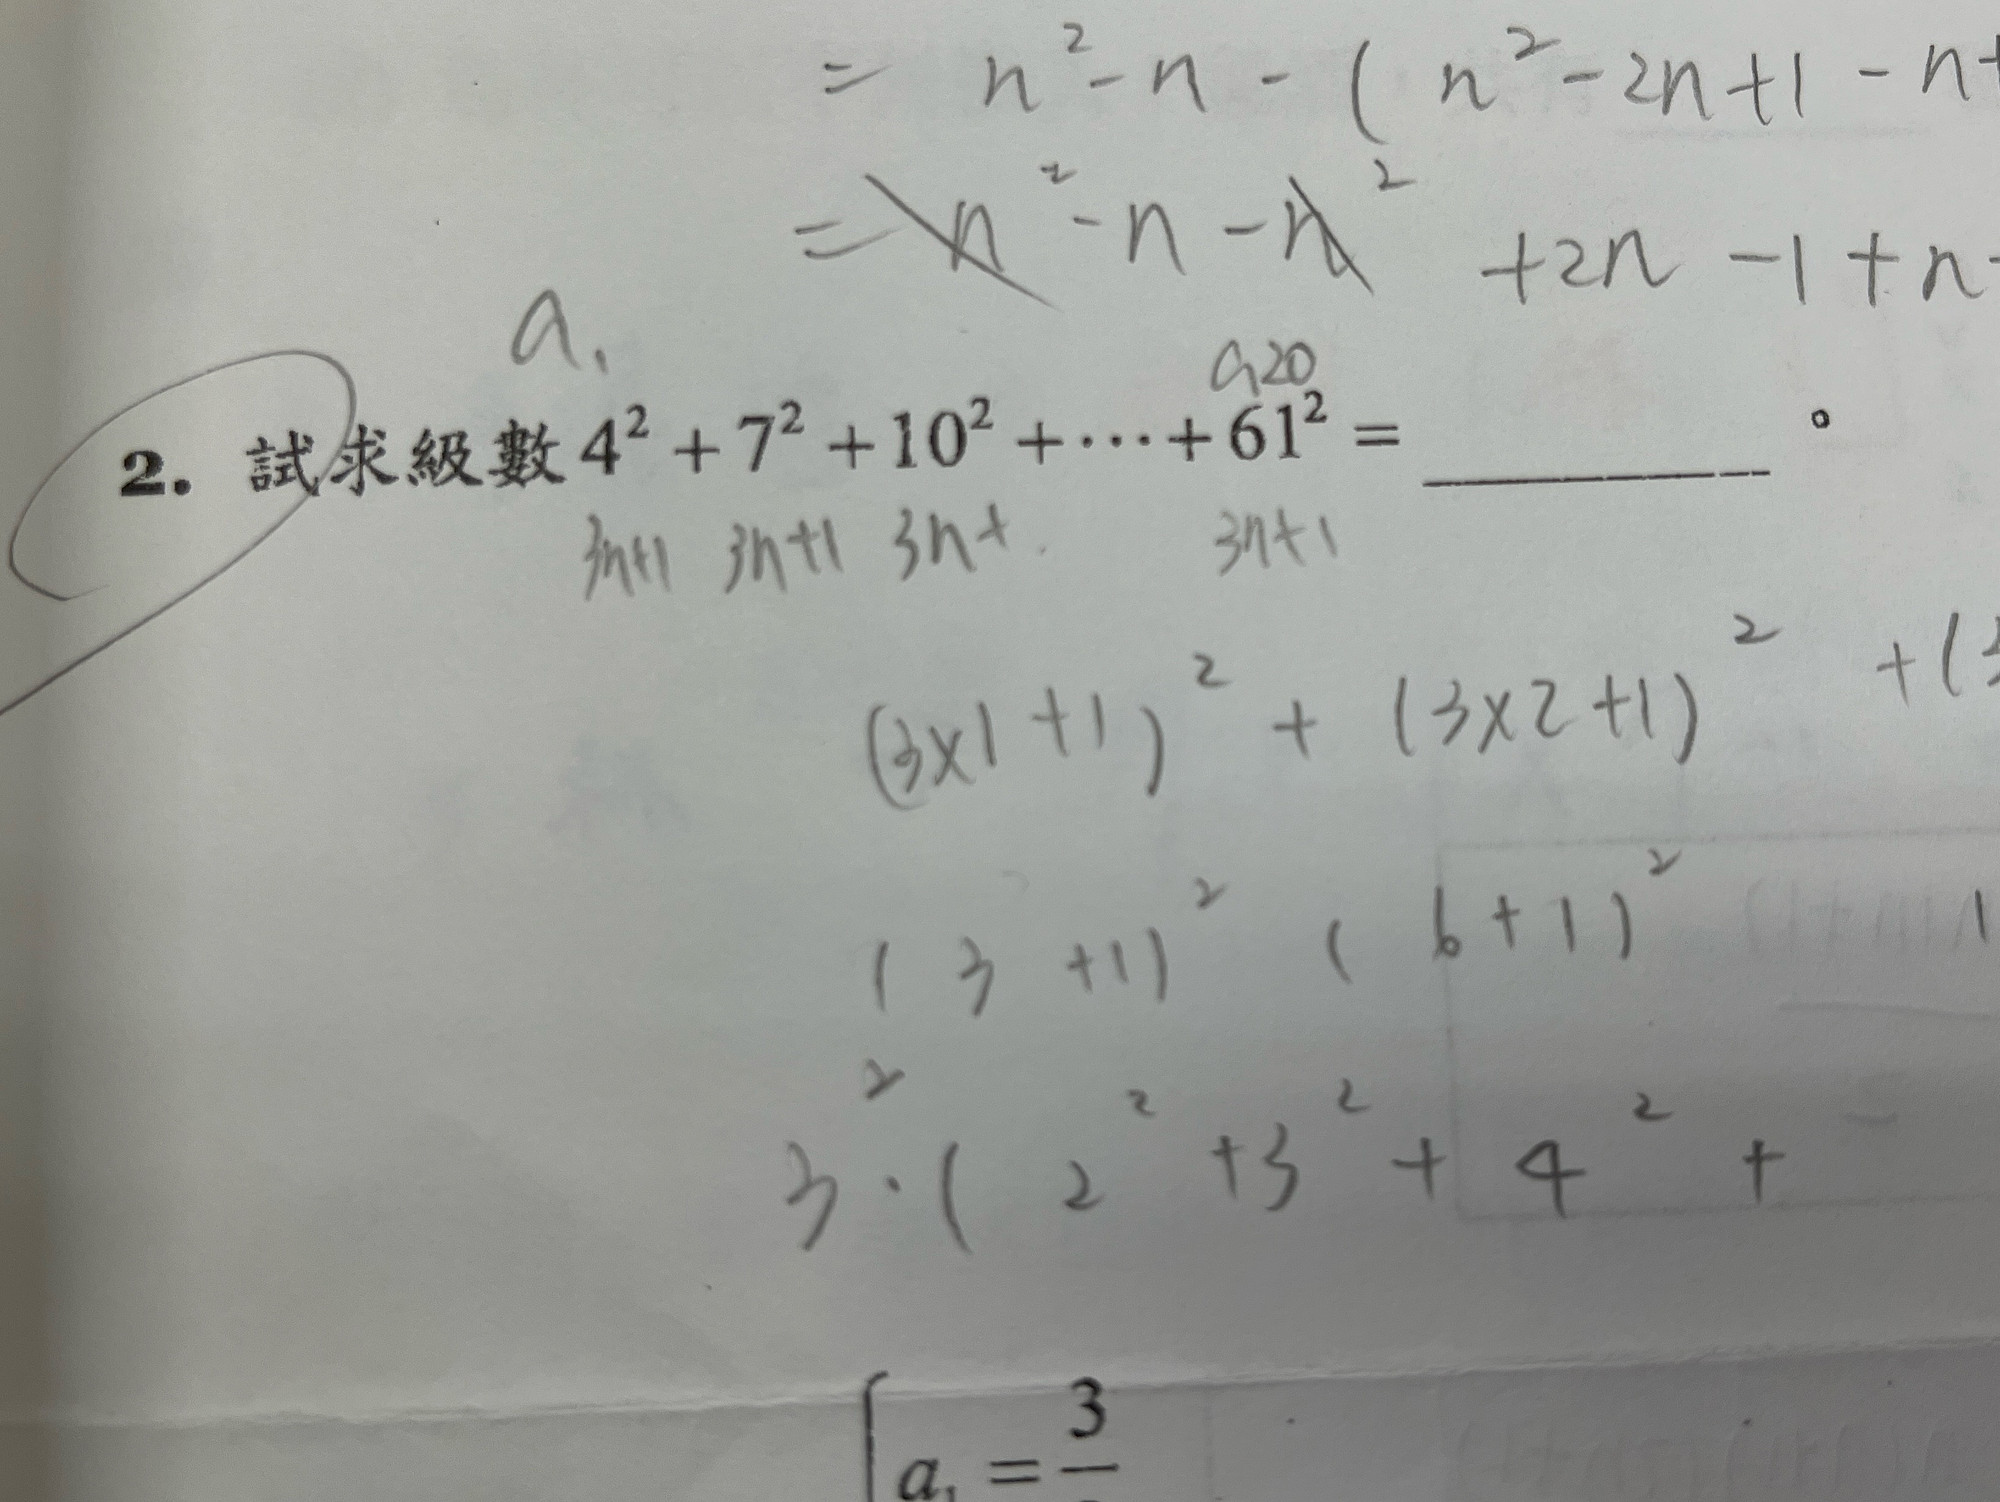 = n² - n - ( n² - 2n + 1 - n +
= n² - n - n² + 2n - 1 + n -
a₁
a20
2. 試求級數 4² + 7² + 10² + ⋯ + 61² = ________ 。
3n+1 3n+1 3n+ 3n+1
(3×1+1)² + (3×2+1)² + (3
( 3 +1)² ( 6+1)²
3² · ( 2² + 3² + 4² +
a₁ = 3